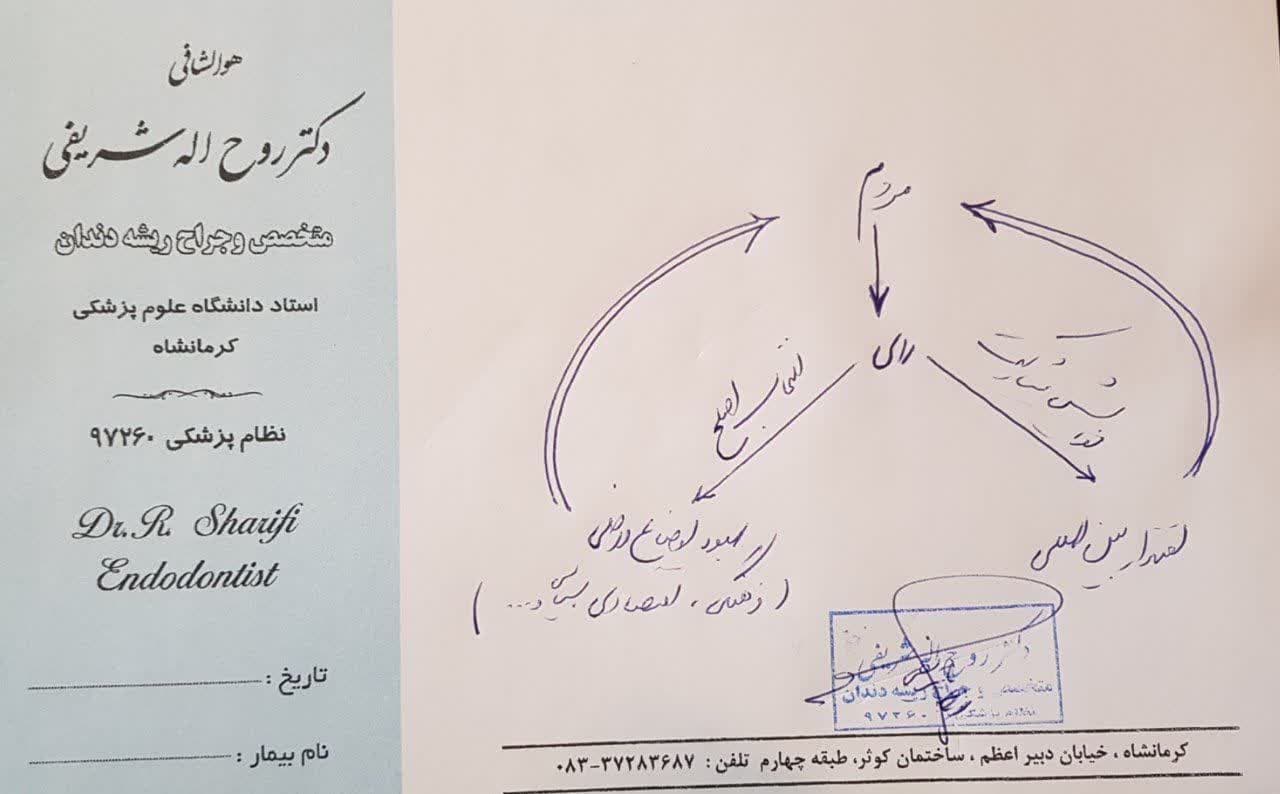 هوالشافی
دکتر روح اله شریفی
متخصص و جراح ریشه دندان
استاد دانشگاه علوم پزشکی
کرمانشاه
نظام پزشکی ۹۷۲۶۰
Dr. R. Sharifi
Endodontist
تاریخ :
نام بیمار :
مردم
رای
انتخاب اصلح
مشارکت
بهبود اوضاع داخلی
(فرهنگی ، اقتصادی سیاسی و...)
اقتدار بین المللی
دکتر روح اله شریفی
متخصص و جراح ریشه دندان
نظام پزشکی ۹۷۲۶۰
کرمانشاه ، خیابان دبیر اعظم ، ساختمان کوثر، طبقه چهارم تلفن : ۳۷۲۸۳۶۸۷-۰۸۳